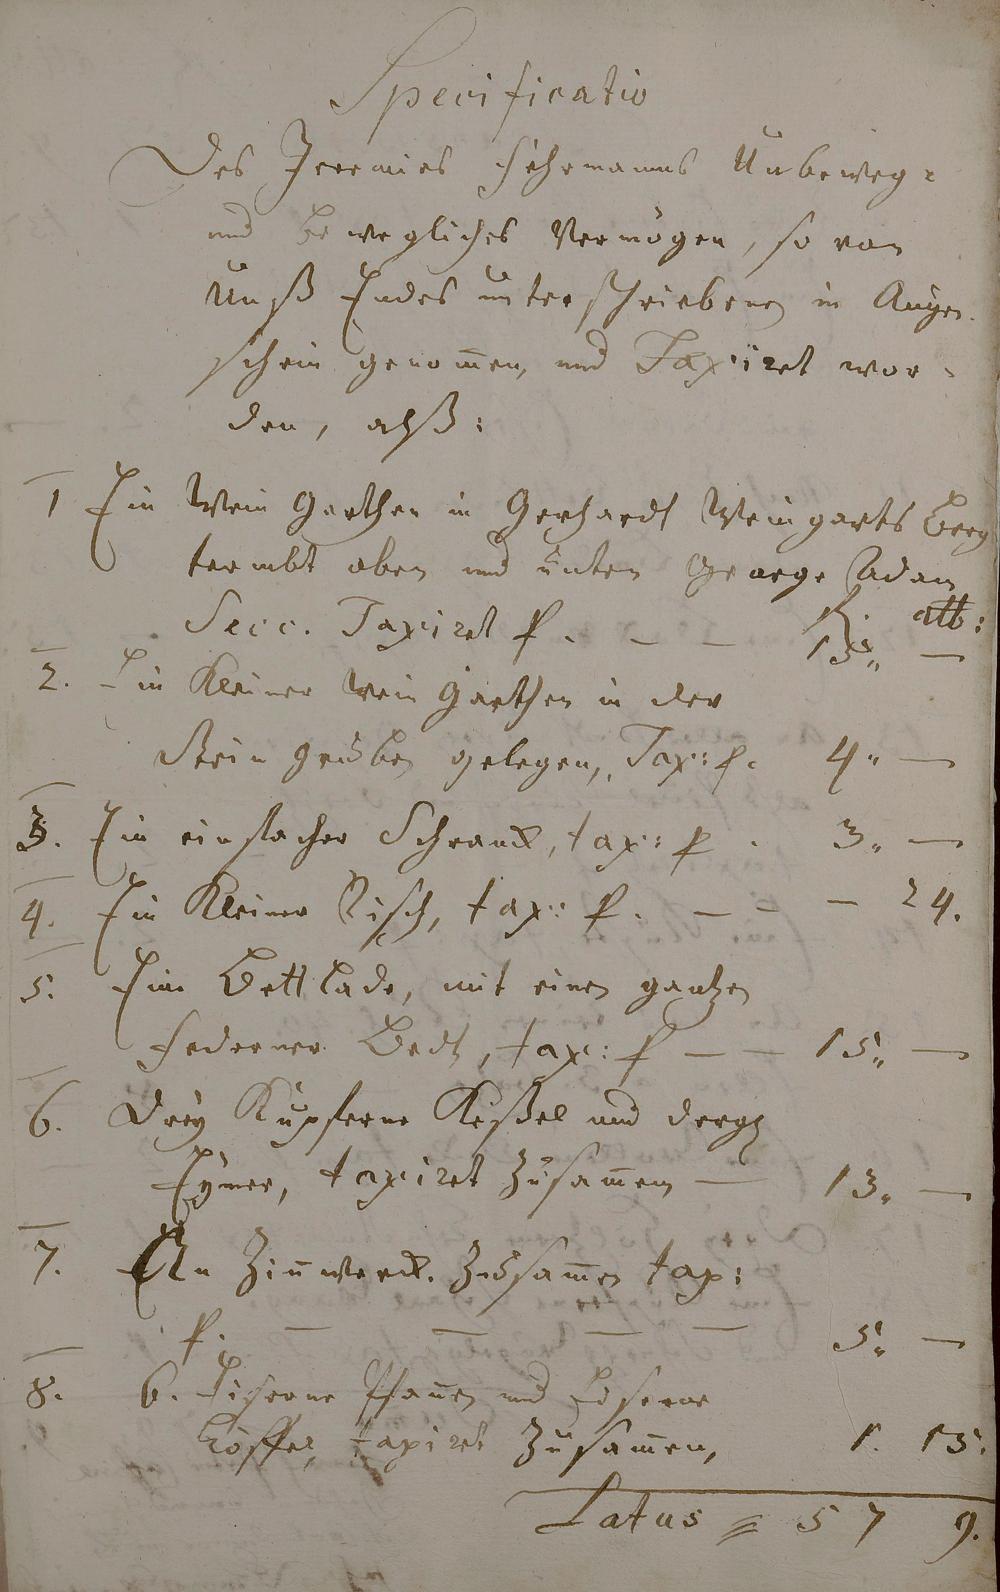 Specificatio
Des Jeremies Fehrmanns Unbeweg-
und Bewegliches Vermögen, so von
Unß Endes unterschriebenen in Augen-
schein genom̄en, und Taxiret wor-
den, alß:
1 Ein Wein Garthen in Gerhardt Weingarts Berg
termbt oben und unten George Adam
Secc. Taxiret p. — — R. alb:
15,, —
2. Ein Kleiner Wein Garthen in der
Stein Gruben gelegen, Tax: p. 4,, —
3. Ein einfacher Schranck, tax: p. 3,, —
4. Ein Kleiner Tisch, tax: p. — — — 24.
5. Eine Bettlade, mit einen gantzen
Federner Bedt, tax: p — — 15,, —
6. Drey Kupferne Keßel und dergl
Eymer, taxiret Zusam̄en — 13,, —
7. An Zin̄werck. Zusam̄en tax:
p. — — — — 5,, —
8. 6. Eiserne Pfan̄en und
Löffel, taxiret Zusam̄en, 1. 15.
Latus = 57 9.